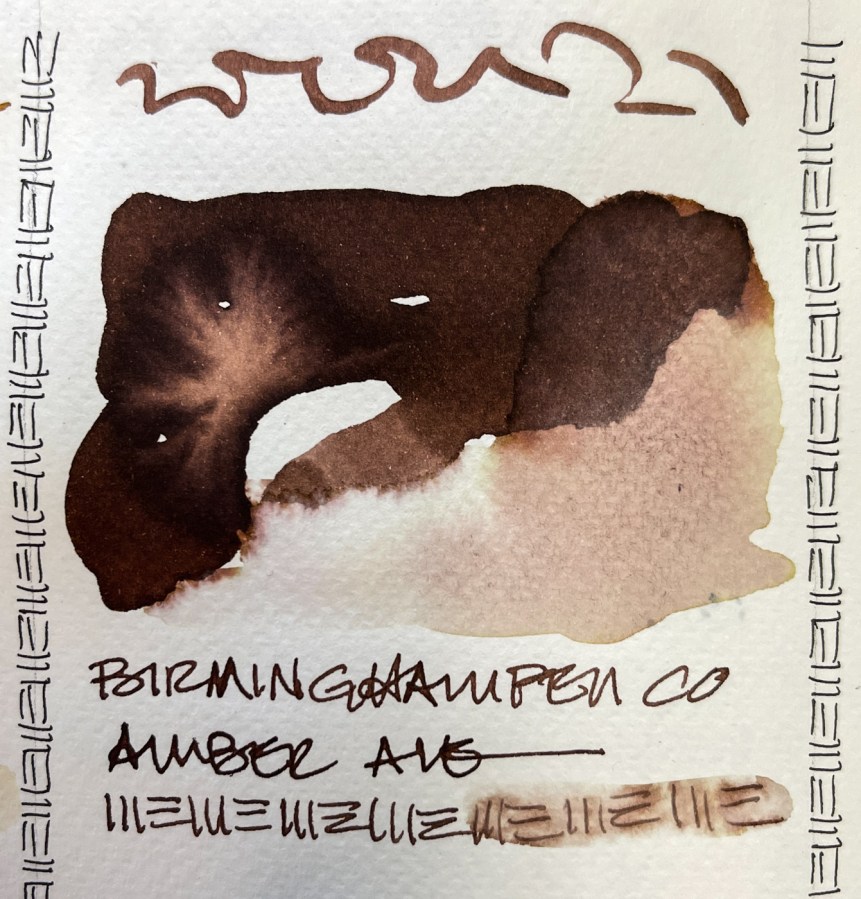 BIRMINGHAMPEN CO
AMBER ALE